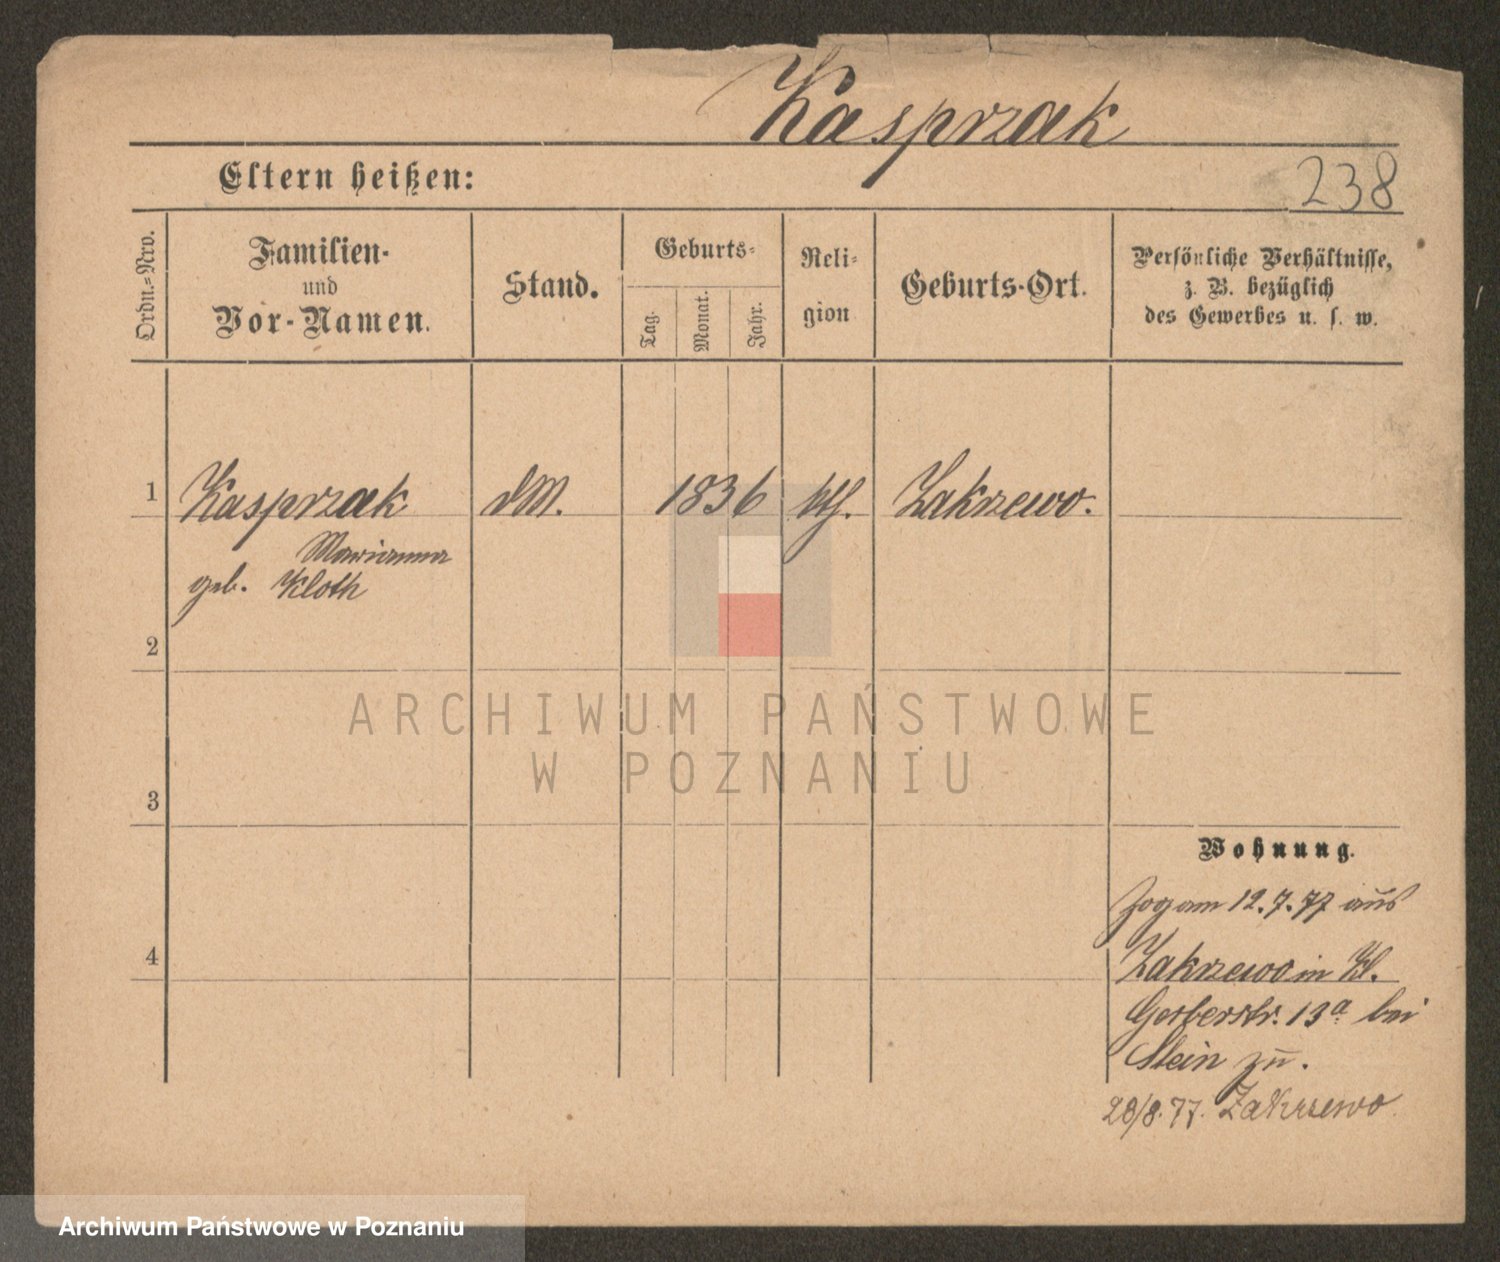 Kasprzak
Eltern heißen:
238
Ordn.=Nro.
Familien-
und
Vor-Namen.
Stand.
Geburts=
Tag.
Monat.
Jahr.
Reli=
gion
Geburts-Ort.
Persönliche Verhältnisse,
z. B. bezüglich
des Gewerbes u. s. w.
1
Kasprzak
1836
kth.
Zakrzewo.
Marianna
geb. Kloth
2
ARCHIWUM PAŃSTWOWE
W POZNANIU
3
Wohnung.
Zog am 12.7.77 aus
4
Zakrzewo in Kl.
Gerberstr. 13a bei
Stein zu.
28/8.77. Zakrzewo
Archiwum Państwowe w Poznaniu